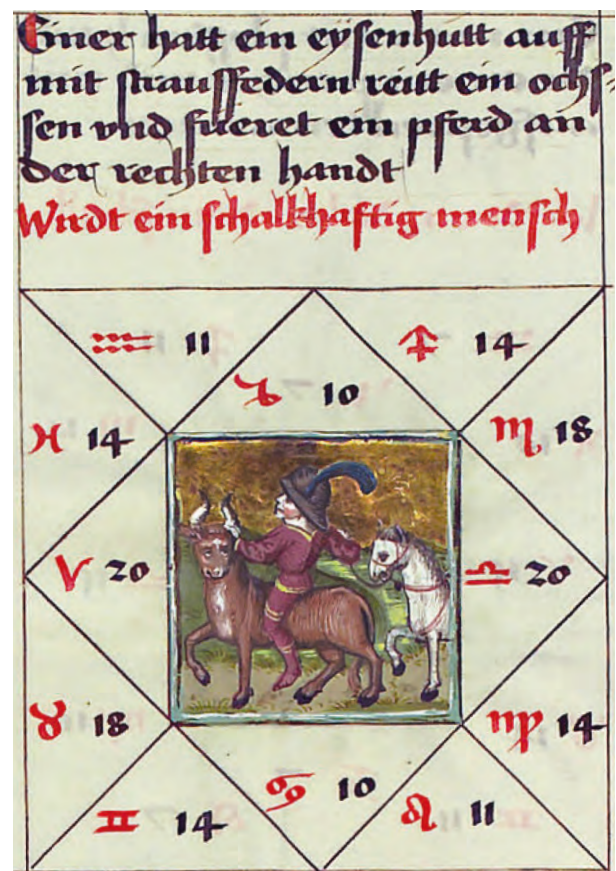 Einer hatt ein eysenhutt auff
mit straussfedern reitt ein ochs-
sen vnd fueret ein pferd an
der rechten handt
Wirdt ein schalkhaftig mensch
♒ 11
♐ 14
♑ 10
♓ 14
♏ 18
♈ 20
♎ 20
♉ 18
♍ 14
♋ 10
♊ 14
♌ 11